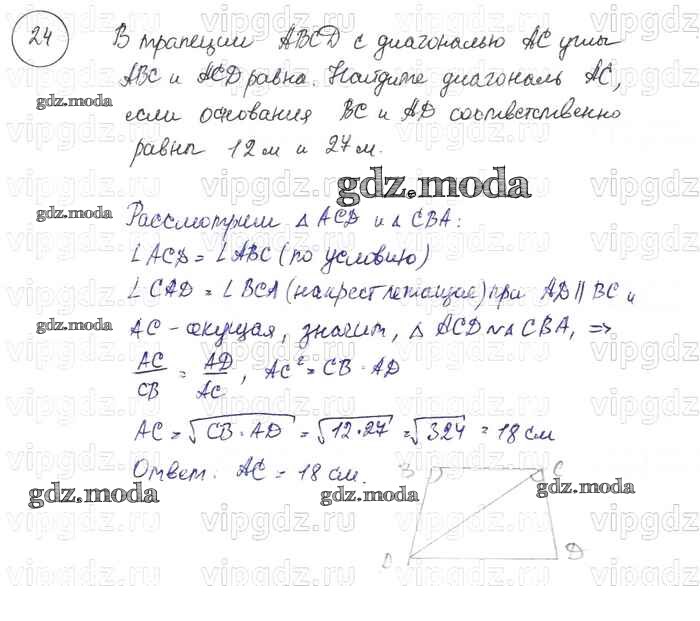 24
В трапеции ABCD с диагональю AC углы
ABC и ACD равны. Найдите диагональ AC,
если основания BC и AD соответственно
равны 12 м и 27 м.
gdz.moda
Рассмотрим △ ACD и △ CBA:
∠ ACD = ∠ ABC (по условию)
∠ CAD = ∠ BCA (накрест лежащие) при AD || BC и
AC - секущая, значит, △ ACD ∾ △ CBA, =>
AC/CB = AD/AC, AC² = CB · AD
AC = √CB · AD = √12 · 27 = √324 = 18 см
Ответ: AC = 18 см.
B C
A D
gdz.moda
gdz.moda
gdz.moda
gdz.moda
gdz.moda
gdz.moda
vipgdz.ru